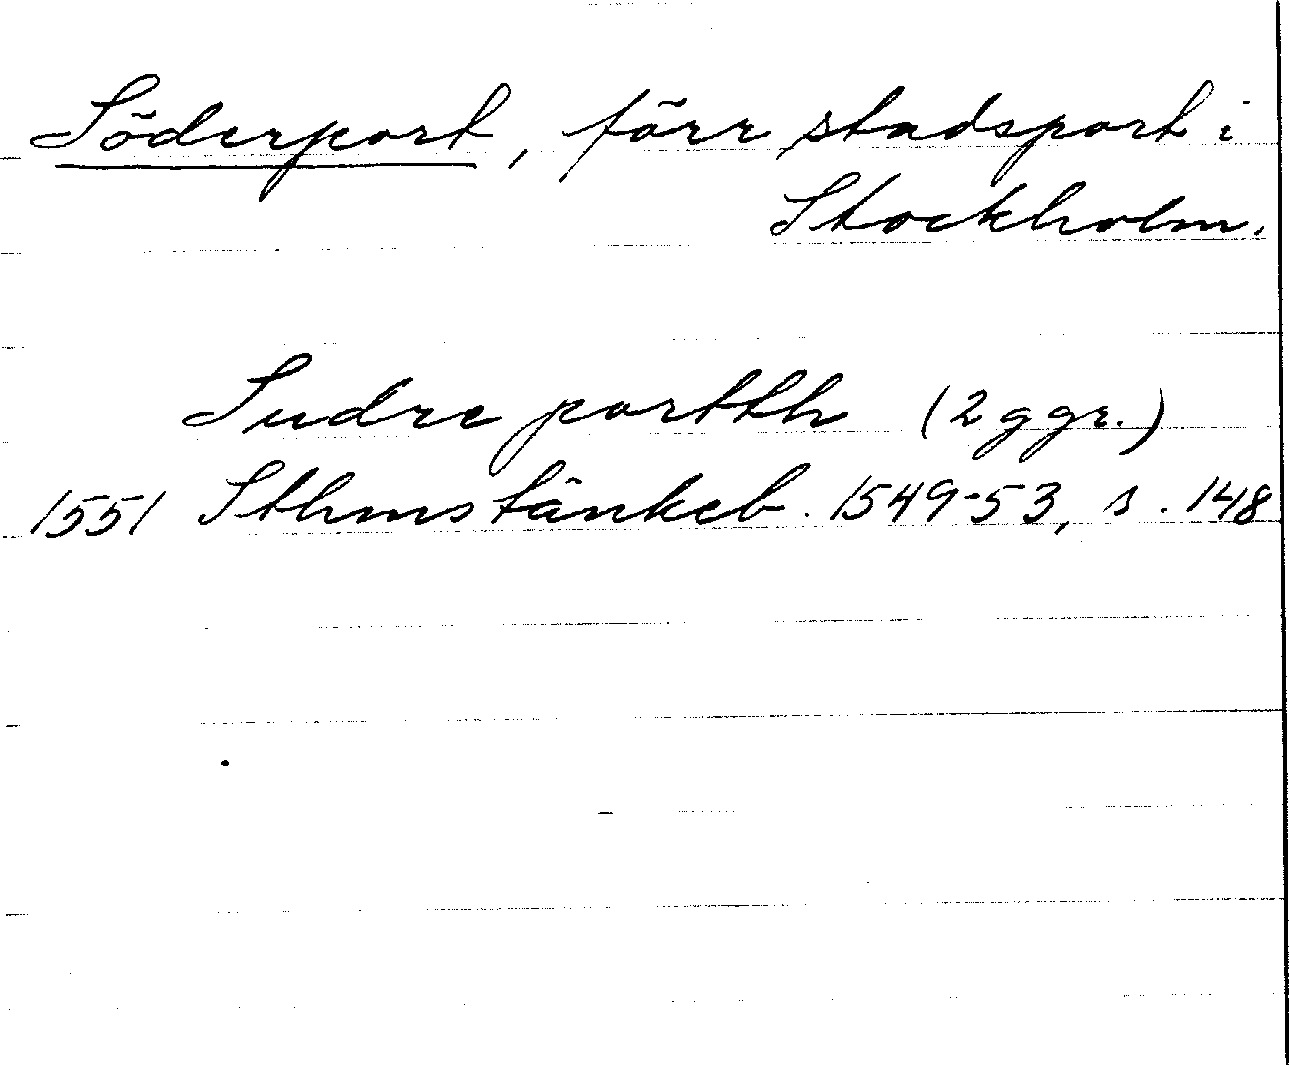 Söderport, förr stadsport i
Stockholm.
Sudre portth (2 ggr.)
1551 Sthms tänkeb. 1549-53, s. 148